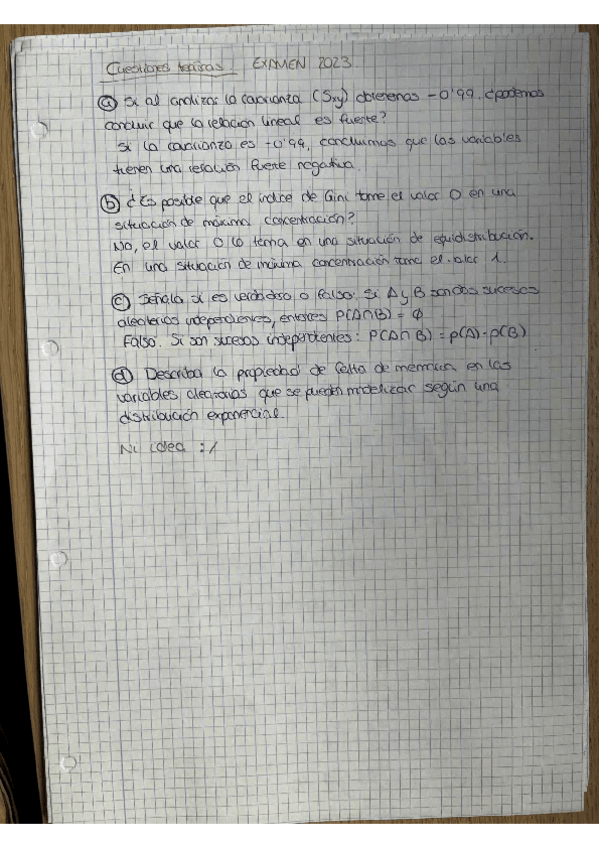 Cuestiones teóricas. EXAMEN 2023
a) Si al analizar la covarianza (Sxy) obtenemos -0'99. ¿podemos
concluir que la relación lineal es fuerte?
Si la covarianza es -0'99, concluimos que las variables
tienen una relación fuerte negativa.
b) ¿Es posible que el índice de Gini tome el valor 0 en una
situación de máxima concentración?
No, el valor 0 lo toma en una situación de equidistribución.
En una situación de máxima concentración toma el valor 1.
c) Señala si es verdadero o falso. Si A y B son dos sucesos
aleatorios independientes, entonces P(A∩B) = ∅
Falso. Si son sucesos independientes: P(A∩B) = p(A)·p(B)
d) Describa la propiedad de falta de memoria en las
variables aleatorias que se pueden modelizar según una
distribución exponencial.
Ni idea :/